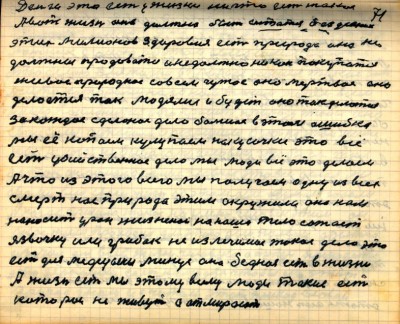 Деньги это есть у жизни ничто есть такая
А вот жизнь она должна быть
71
этих милионов здоровия есть природа она не
должны продовати и недолжно никак покупатся
живое природное совсем чужое оно мертвое оно
делается так людями и будет оно так делатся
за каждое сделаное дело болшая в этом ошибка
мы её копаем купляем на кусочки это всё
есть убийственное дело мы люди всё это делаем
А что из этого всего мы получаем одну из всех
смерт нас природа этим окружила она нам
наносит урон жизненой на наше тело сажает
язвочку или грибок не излечимое такое дело это
есть для медецыны минус она бедная есть в жизни
А жизн есть мы этому всему люди такие есть
которои не живут а отмирают